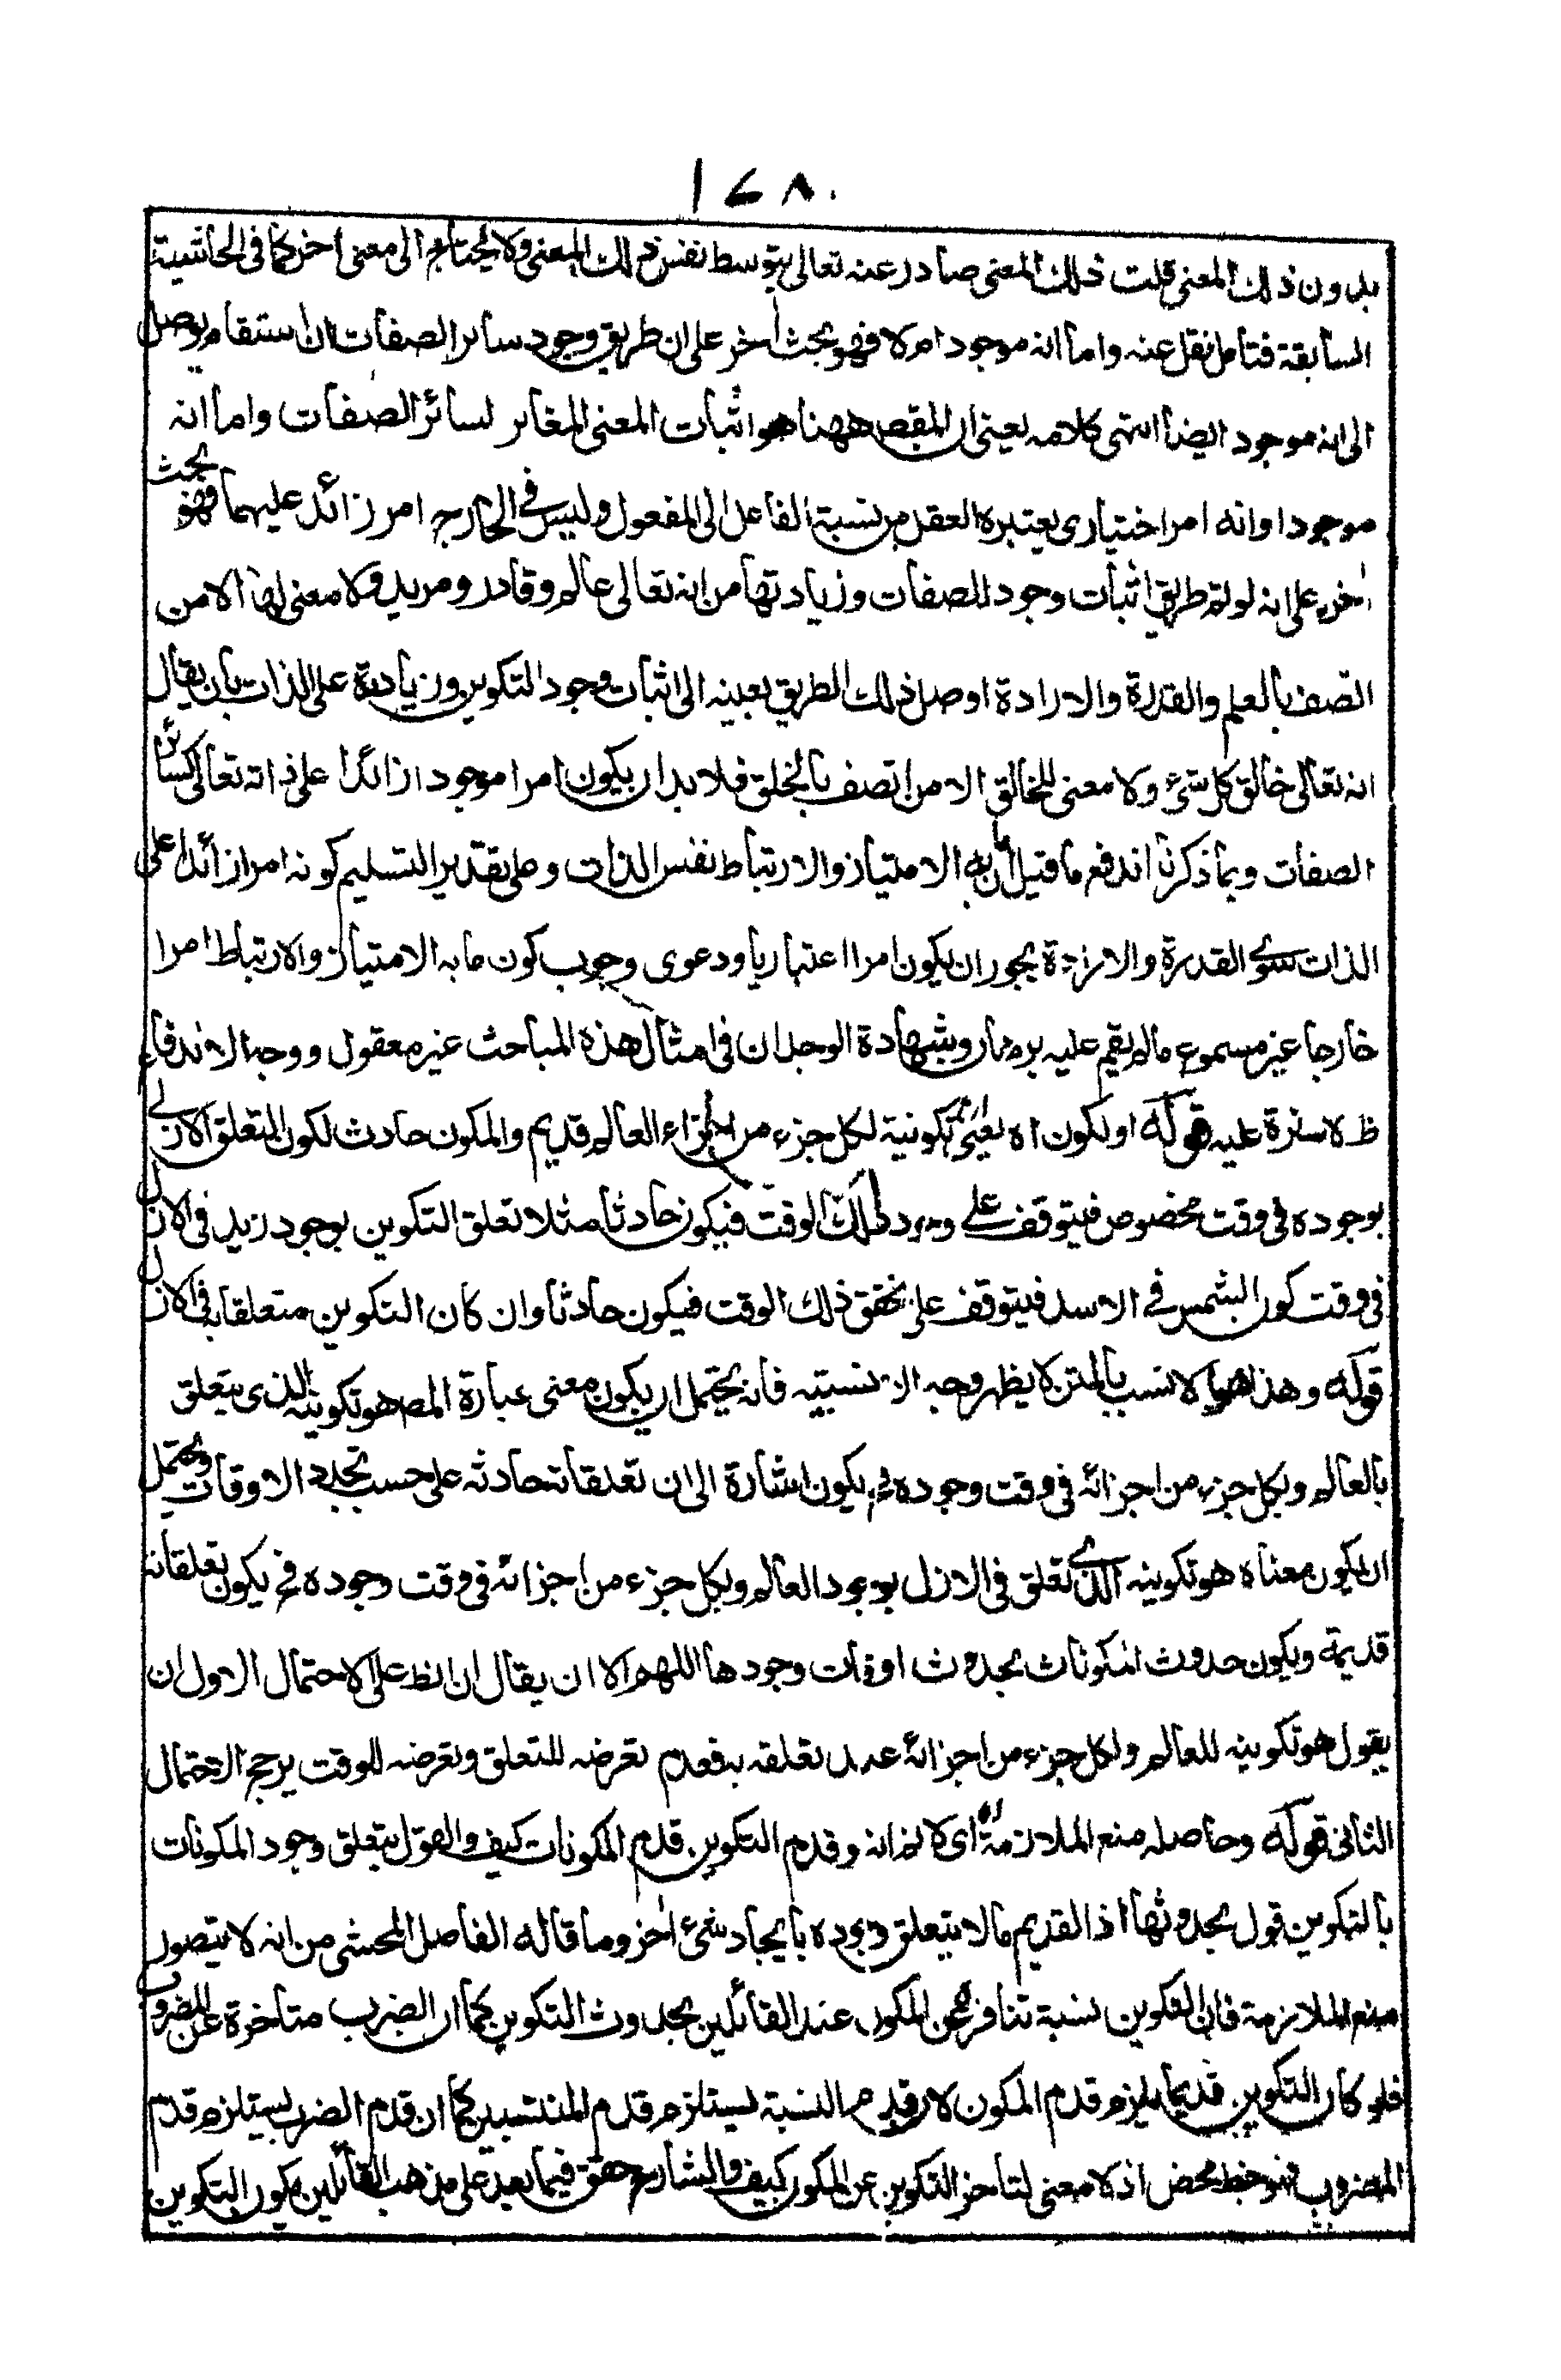 ١٦٨
بدون ذلك المعنى قلت ذلك المعنى صادر عنه تعالى بتوسط نفس ذلك المعنى ولا يحتاج الى معنى اخر كما فى الحاشية
السابقة فتامل نقل عنه واما انه موجود ام لا فهو بحث اخر على ان طريق وجود ساير الصفات ان استقام يوصل
الى انه موجود ايضا انتهى كلامه يعنى ان المقص ههنا هو اثبات المعنى المغاير لسائر الصفات واما انه
موجود او انه امر اختيارى يعتبره العقل من نسبة الفاعل الى المفعول وليس فى الخارج امر زائد عليهما فهو بحث
اخر على انه لو تم طريق اثبات وجود الصفات وزيادتها من انه تعالى عالم وقادر ومريد ولا معنى لها الا من
اتصف بالعلم والقدرة والارادة اوصل ذلك الطريق بعينه الى اثبات وجود التكوين وزيادة على الذات بان يقال
انه تعالى خالق كل شئ ولا معنى للخالق الا من اتصف بالخلق فلا بد ان يكون امرا موجودا زائدا على ذاته تعالى كسائر
الصفات وبما ذكرنا اندفع ما قيل ان ما به الامتياز والارتباط نفس الذات وعلى تقدير التسليم كونه امرا زائدا على
الذات سوى القدرة والارادة يجوز ان يكون امرا اعتباريا ودعوى وجوب كون ما به الامتياز والارتباط امرا
خارجا غير مسموع مالم يقم عليه برهان وشهادة الوجدان فى امثال هذه المباحث غير معقول ووجه الاندفاع
ظ لا سترة عليه قوله او لكون اه يعنى ان تكوينه لكل جزء من اجزاء العالم قديم والمكون حادث لكون التعلق الازلى
بوجوده فى وقت مخصوص فيتوقف على وجود ذلك الوقت فيكون حادثا مثلا تعلق التكوين بوجود زيد فى الازل
فى وقت كون الشمس فى الاسد فيتوقف على تحقق ذلك الوقت فيكون حادثا وان كان التكوين متعلقا به فى الازل
قوله وهذا هو الانسب بالمتن لا يظهر وجه الانسبيه فانه يحتمل ان يكون معنى عبارة المص هو تكوينه الذى يتعلق
بالعالم وبكل جزء من اجزائه فى وقت وجوده فح يكون اشارة الى ان تعلقاته حادثه على حسب تجدد الاوقات ويحتمل
ان يكون معناه هو تكوينه الذى تعلق فى الازل بوجود العالم وبكل جزء من اجزائه فى وقت وجوده فح يكون تعلقاته
قديمة ويكون حدوث المكونات بحدوث اوقات وجودها اللهم الا ان يقال ان الظ على الاحتمال الاول ان
يقول هو تكوينه للعالم ولكل جزء من اجزائه عند تعلقه به فعدم تعرضه للتعلق وتعرضه للوقت يرجح الاحتمال
الثانى قوله وحاصله منع الملازمة اى لا نم انه لو قدم التكوين قدم المكونات كيف والقول بتعلق وجود المكونات
بالتكوين قول بحدوثها اذ القديم مالا يتعلق وجوده بايجاد شئ اخر وما قاله الفاضل المحشى من انه لا يتصور
منع الملازمة فان التكوين نسبة تتاخر عن المكون عند القائلين بحدوث التكوين كما ان الضرب متاخرة عن المضروب
فلو كان التكوين قديما يلزم قدم المكون لان قدم النسبة يستلزم قدم المنتسبين كما ان قدم الضرب يستلزم قدم
المضروب فهو خبط محض اذ لا معنى لتاخر التكوين عن المكون كيف والشارح حقق فيما بعد على مذهب القائلين بكون التكوين